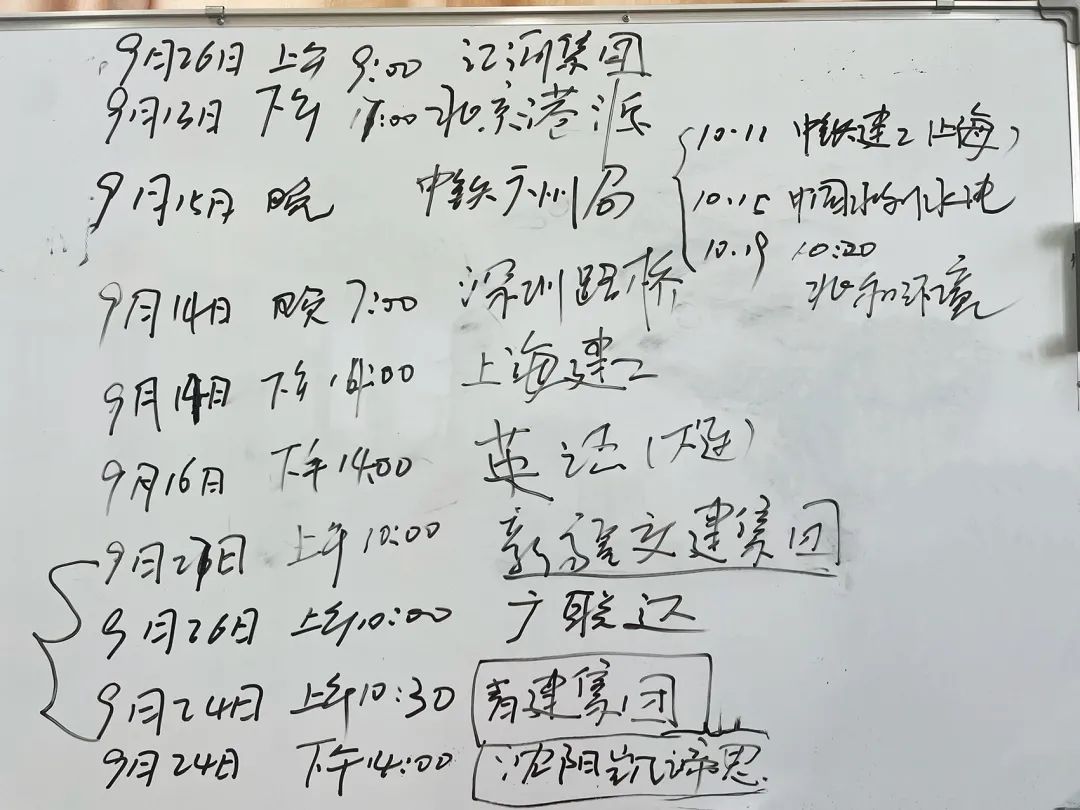 9月26日 上午 9:00 江河集团
9月13日 下午 17:00 北京港源
9月15日 晚 中铁广州局
9月14日 晚 7:00 深圳路桥
9月14日 下午 16:00 上海建工
9月16日 下午 14:00 英语(大连)
9月27日 上午 10:00 交建集团
9月26日 上午 10:00 广联达
9月24日 上午 10:30 青建集团
9月24日 下午 14:00 沈阳凯谛思
10.11 中铁建工(上海)
10.15 中国水利水电
10.19 10:20
环境